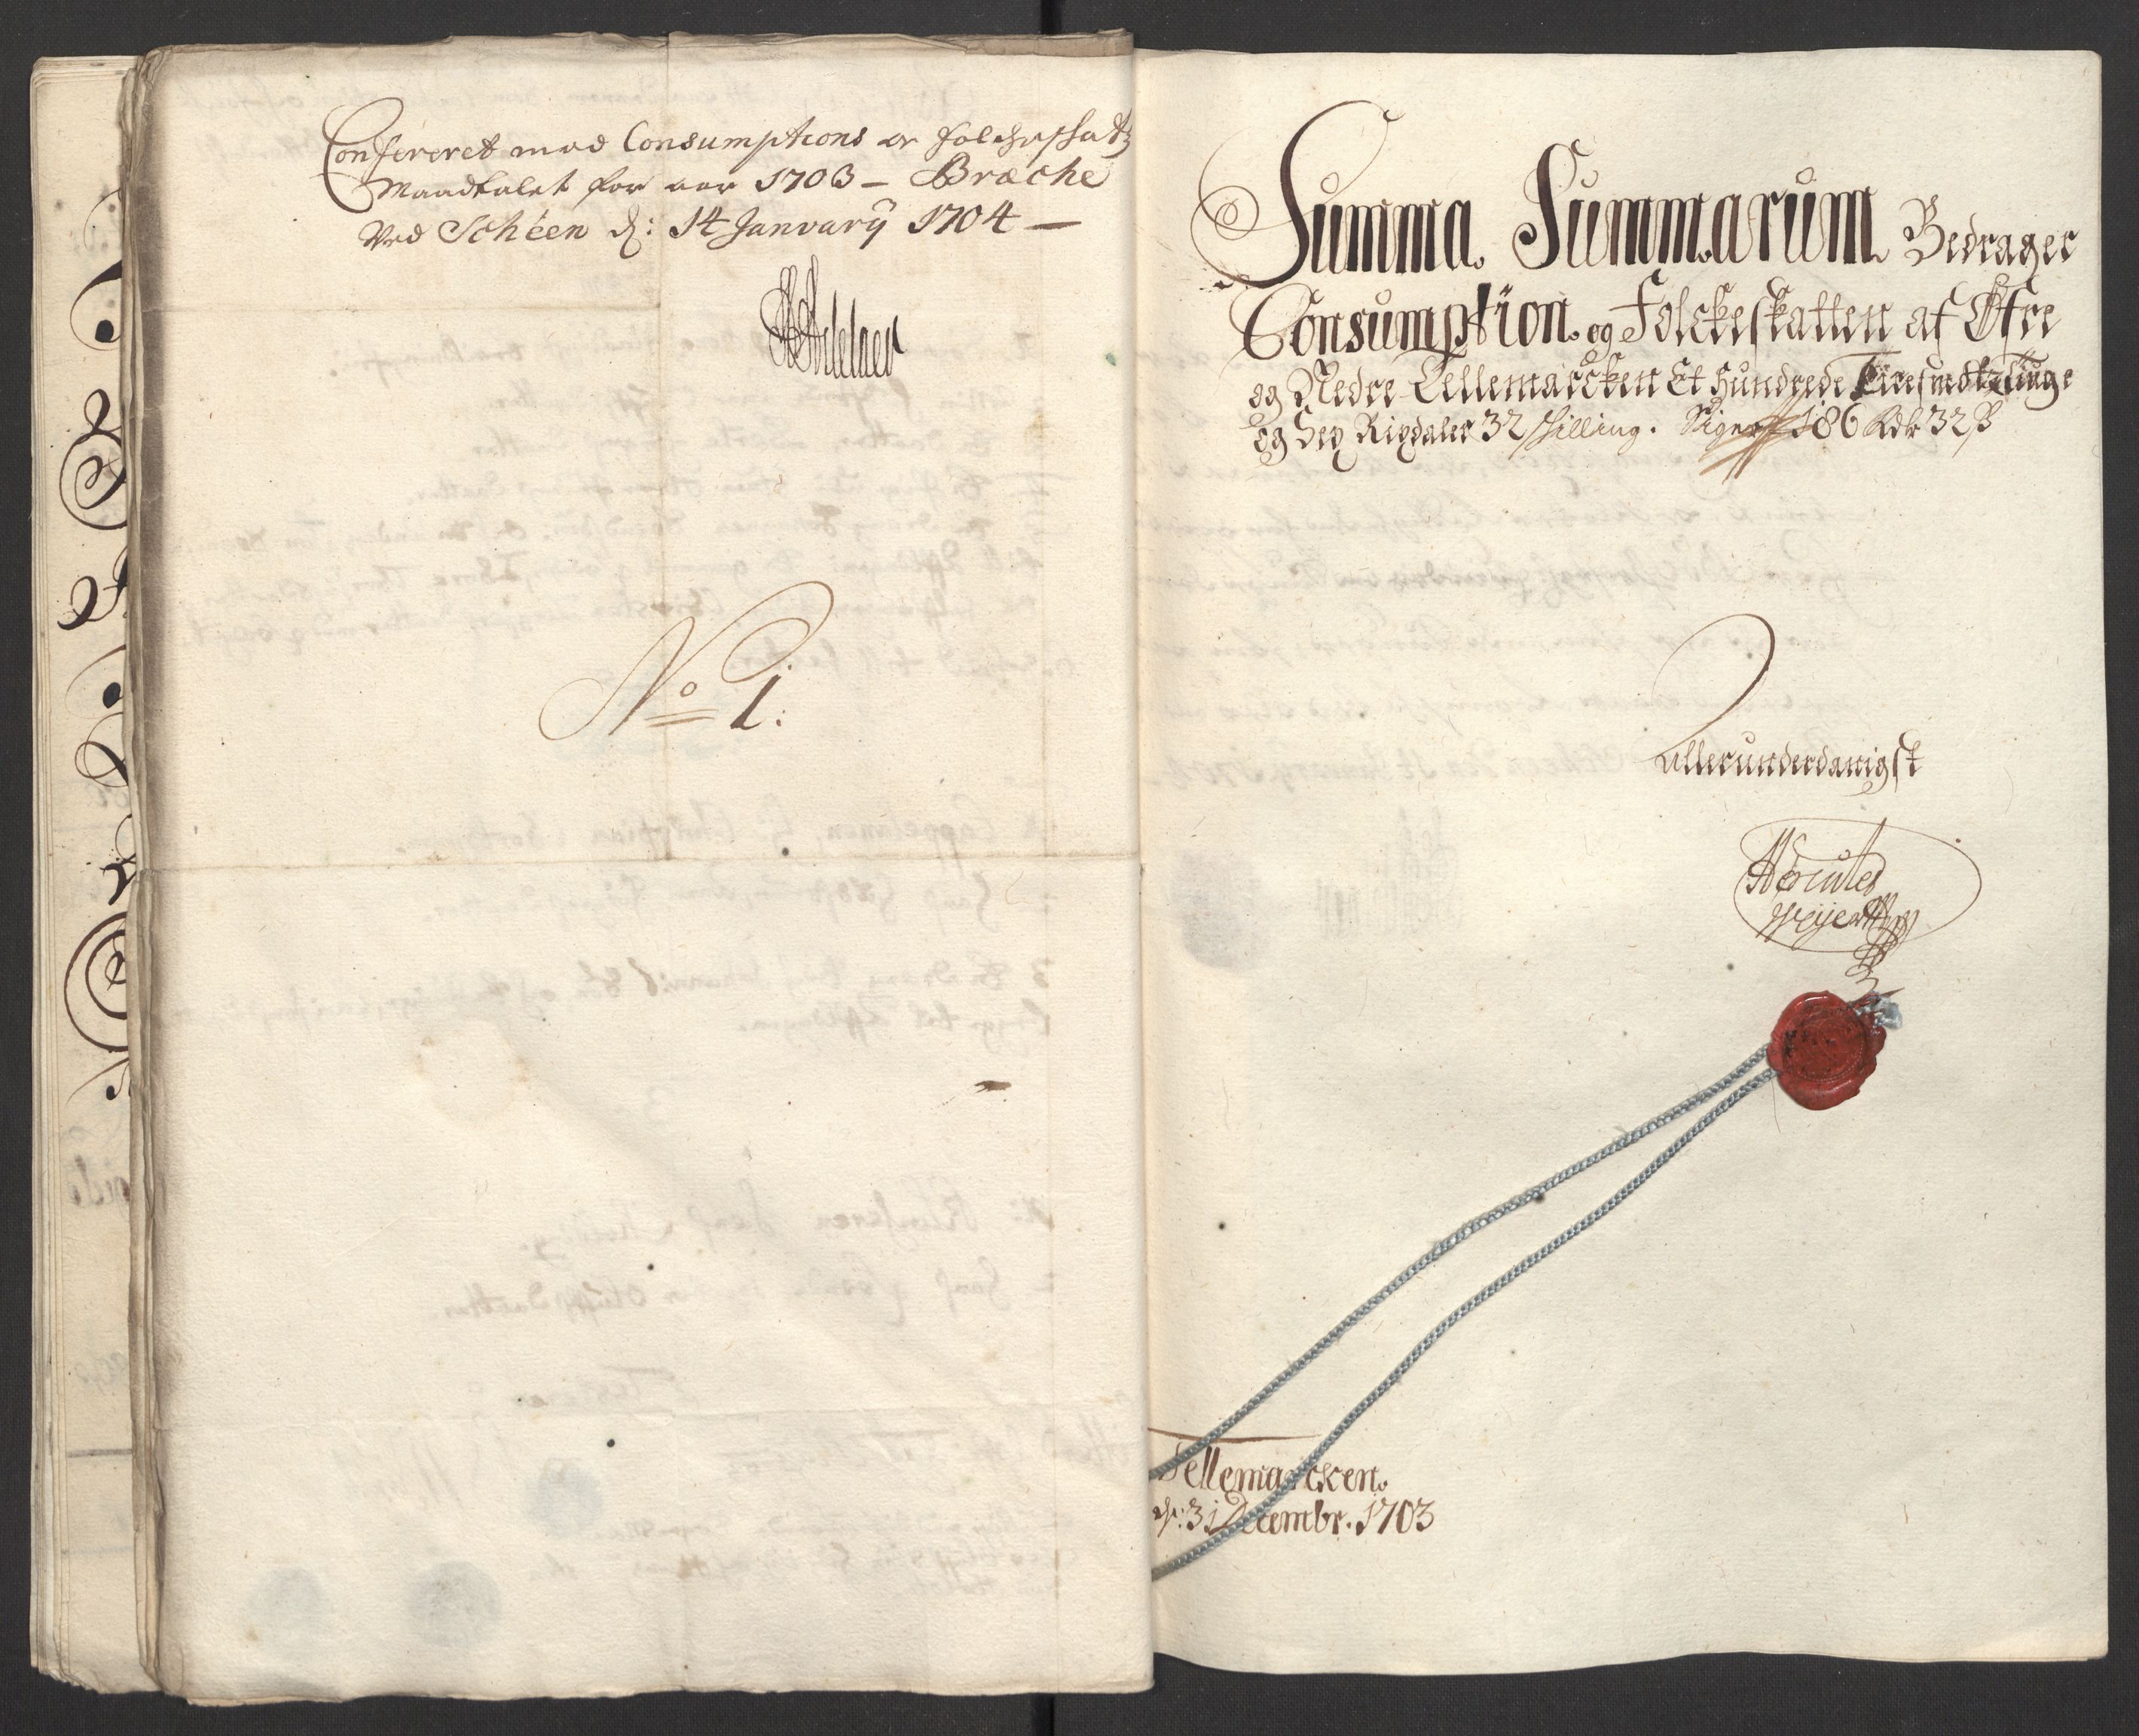 Confereret med Consumptions og folcheskatz
Mandtalet for aar 1703 – Bræche
Ved Schéen d: 14 Januarÿ 1704 –
HAdelaer
No 1:
Summa Summarum Bedrager
Consumption og Folckeskatten af Øfre
og Nedre Tellemarcken Et hundrede Firesindtztiuge
og Sex Rixdaler 32 skilling. Siger 186 Rdr 32 ß
Allerunderdanigst
Hercules
Weyer
Tellemarcken.
d: 31 Decembr. 1703